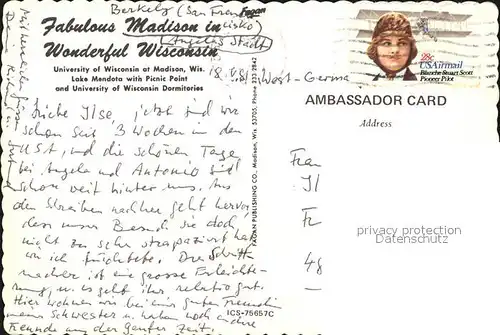 Berkely (San Fran-
cisko)
Fabulous Madison in
Wonderful Wisconsin
University of Wisconsin at Madison, Wis.
Lake Mendota with Picnic Point
and University of Wisconsin Dormitories
18.V.81
West-Germa
28c
USAirmail
Blanche Stuart Scott
Pioneer Pilot
AMBASSADOR CARD
Address
Liebe Ilse, jetzt sind wir
schon seit 3 Wochen in den
USA, und die schönen Tage
bei Angela und Antonio sind
schon weit hinter uns. Aus
den Schreiben nachher geht hervor,
dass unser Besuch sie doch
nicht so sehr strapaziert hat
wie ich fürchtete. Die Schritt-
macher ist eine grosse Erleichte-
rung, es geht ihm relativ gut.
Hier wohnen wir bei einer guten Freundin
meiner Schwester u. haben noch andere
Freunde aus der Genfer Zeit.
FAGAN PUBLISHING CO., Madison, Wis. 53705, Phone 233-3842
ICS-75657C
Frau
Il
Fr
48
privacy protection
Datenschutz